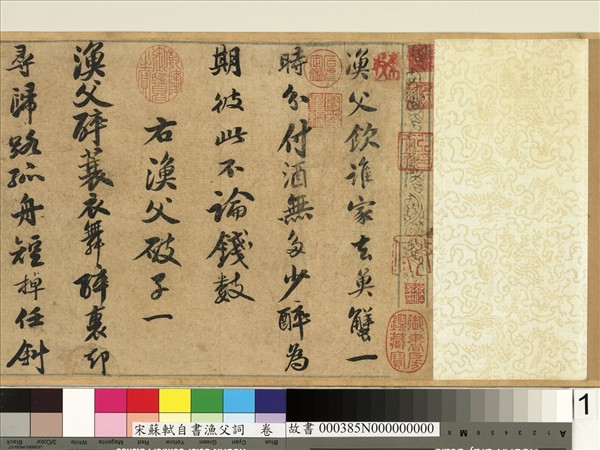 漁父飲誰家去魚蟹一
時分付酒無多少醉為
期彼此不論錢數
右漁父破子一
漁父醉蓑衣舞醉裏却
尋歸路孤舟短棹任斜
御書房鑑藏寶
宋蘇軾自書漁父詞 卷
故書 000385N000000000
1
Blue Cyan Green Yellow Red Magenta White 3/Color Black